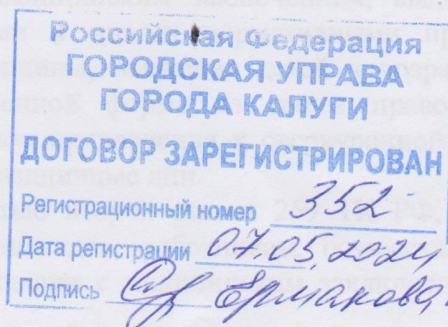 Российская Федерация
ГОРОДСКАЯ УПРАВА
ГОРОДА КАЛУГИ
ДОГОВОР ЗАРЕГИСТРИРОВАН
Регистрационный номер 352
Дата регистрации 07.05.2024
Подпись Ермакова